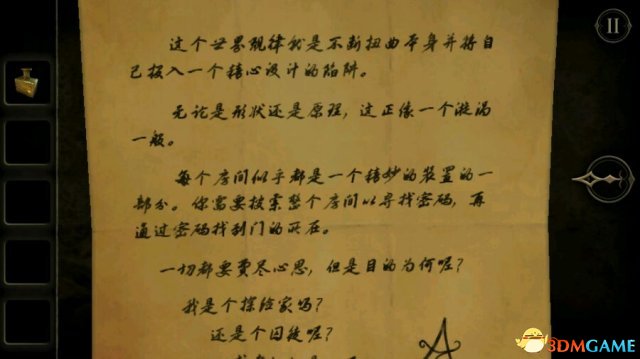 这个世界规律就是不断扭曲本身并将自
己投入一个精心设计的陷阱。
无论是形状还是原理，这正像一个漩涡
一般。
每个房间似乎都是一个精妙的装置的一
部分。你需要搜索整个房间以寻找密码，再
通过密码找到门的所在。
一切都要费尽心思，但是目的为何呢？
我是个探险家吗？
还是个囚徒呢？
3DMGAME